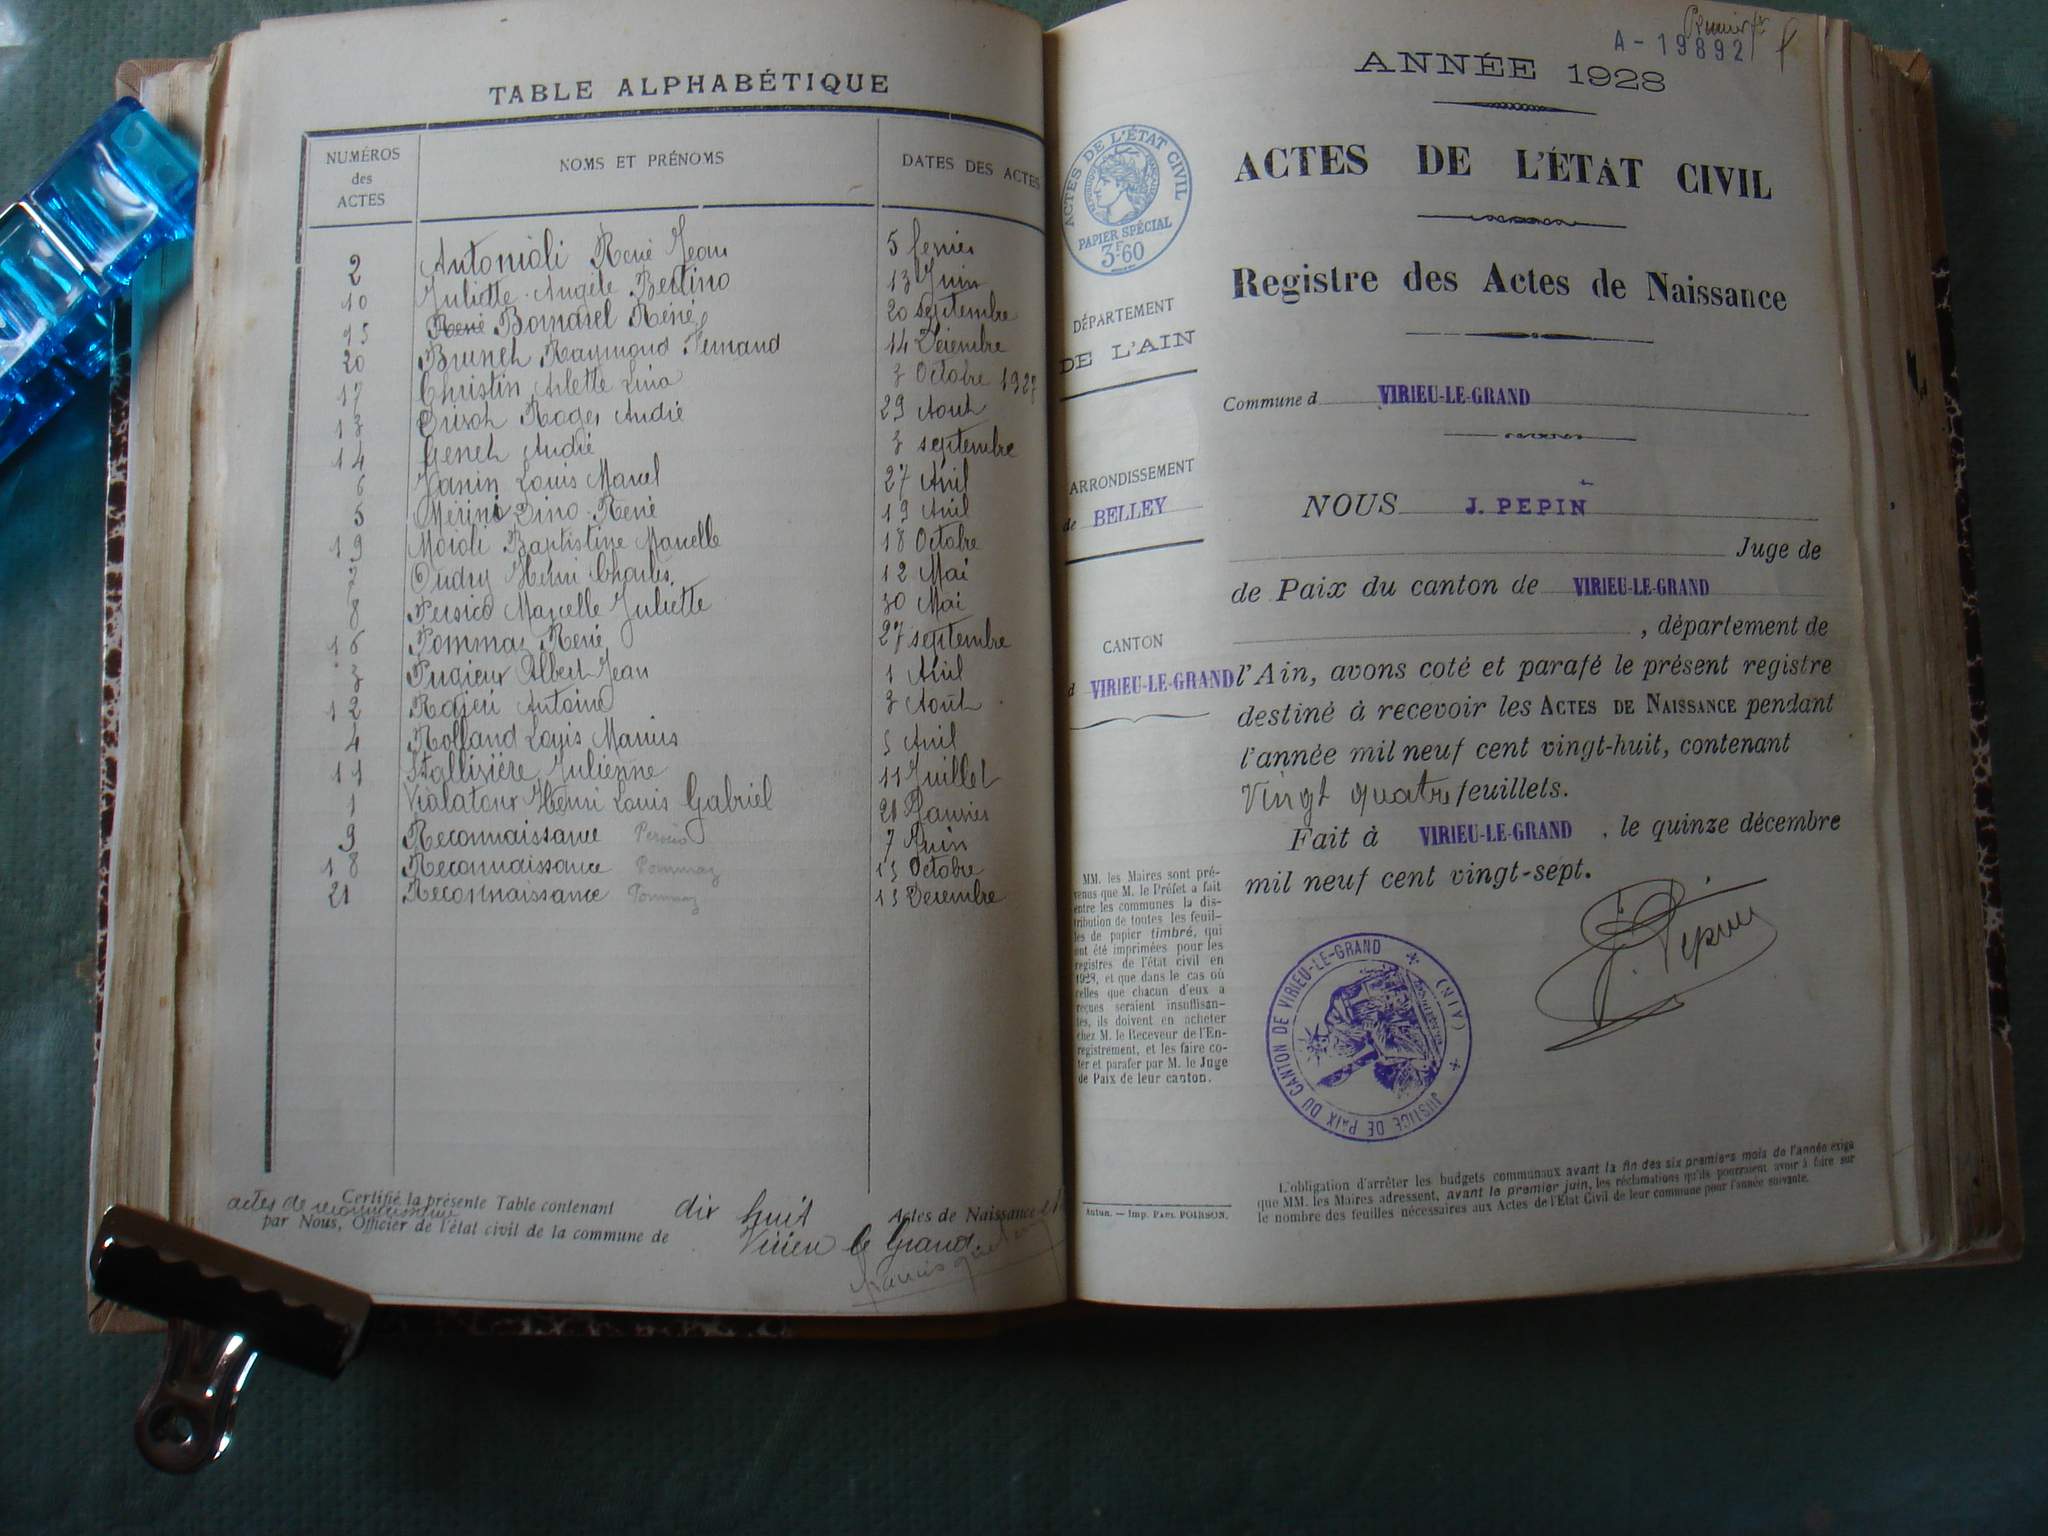 TABLE ALPHABÉTIQUE
NUMÉROS des ACTES
NOMS ET PRÉNOMS
DATES DES ACTES
2 Antonioli René Jean 5 fevrier
10 Juliette Angèle Bertino 13 Juin
15 René Bomarel René 20 septembre
20 Brunet Raymond Fernand 14 Décembre
17 Christin Arlette Lina 3 Octobre 1927
13 Roger André 29 Aout
14 Genet André 3 septembre
6 Janin Louis Marcel 27 Avril
5 Mérini Dino René 19 Avril
19 Moioli Baptistine Marcelle 18 Octobre
7 Oudry Henri Charles 12 Mai
8 Persico Marcelle Juliette 30 Mai
16 Pommaz René 27 septembre
3 Pugieux Albert Jean 1 Avril
12 Antoine 3 Août
4 Rolland Louis Marius 5 Avril
11 Julienne 11 Juillet
1 Violatour Henri Louis Gabriel 21 Janvier
9 Reconnaissance Persico 7 Juin
18 Reconnaissance Pommaz 15 Octobre
21 Reconnaissance Pommaz 15 Decembre
Certifié la présente Table contenant dix huit Actes de Naissance et
actes de reconnaissance
par Nous, Officier de l'état civil de la commune de Virieu le Grand
Premier
A - 19892
ANNÉE 1928
ACTES DE L'ÉTAT CIVIL
PAPIER SPÉCIAL
3F.60
ACTES DE L'ÉTAT CIVIL
Registre des Actes de Naissance
DÉPARTEMENT
DE L'AIN
Commune d VIRIEU-LE-GRAND
ARRONDISSEMENT
de BELLEY
CANTON
d VIRIEU-LE-GRAND
NOUS J. PEPIN
Juge de
de Paix du canton de VIRIEU-LE-GRAND
, département de
l'Ain, avons coté et parafé le présent registre
destiné à recevoir les ACTES DE NAISSANCE pendant
l'année mil neuf cent vingt-huit, contenant
Vingt quatre feuillets.
Fait à VIRIEU-LE-GRAND , le quinze décembre
mil neuf cent vingt-sept.
J. Pepin
JUSTICE DE PAIX DU CANTON DE VIRIEU-LE-GRAND * (AIN) *
MM. les Maires sont pré-
venus que M. le Préfet a fait
entre les communes la dis-
tribution de toutes les feuil-
les de papier timbré, qui
ont été imprimées pour les
registres de l'état civil en
1928, et que dans le cas où
celles que chacun d'eux a
reçues seraient insuffisan-
tes, ils doivent en acheter
chez M. le Receveur de l'En-
registrement, et les faire co-
ter et parafer par M. le Juge
de Paix de leur canton.
Autun. — Imp. PAUL POIRSON.
L'obligation d'arrêter les budgets communaux avant la fin des six premiers mois de l'année exige
que MM. les Maires adressent, avant le premier juin, les réclamations qu'ils pourraient avoir à faire sur
le nombre des feuilles nécessaires aux Actes de l'Etat Civil de leur commune pour l'année suivante.